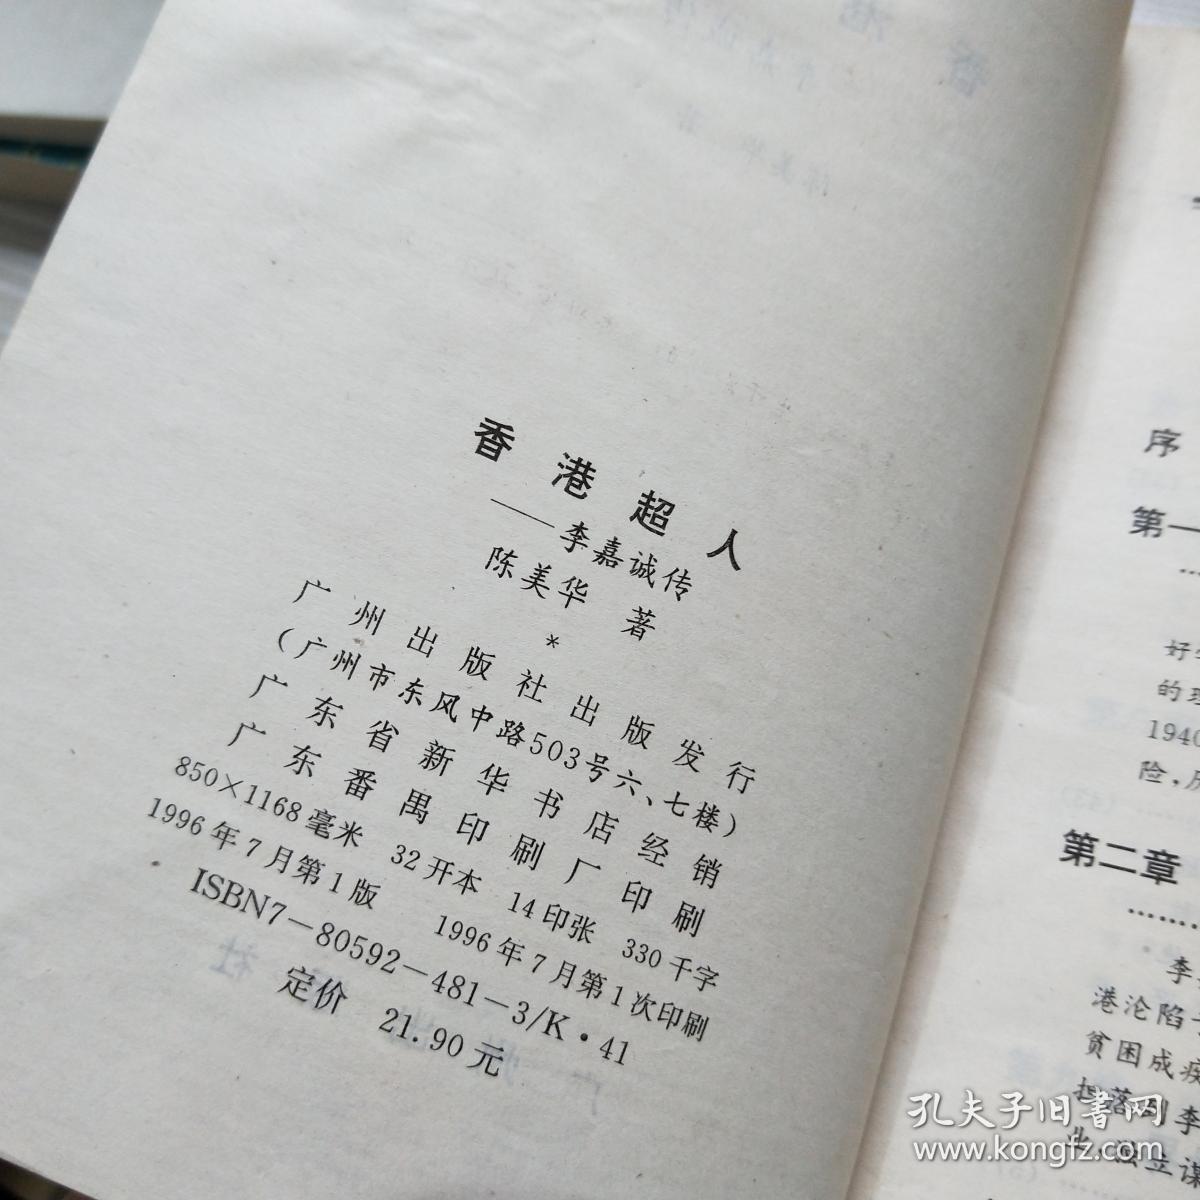 香港超人
——李嘉诚传
陈美华 著
*
广州出版社出版发行
(广州市东风中路503号六、七楼)
广东省新华书店经销
广东番禺印刷厂印刷
850×1168毫米 32开本 14印张 330千字
1996年7月第1版 1996年7月第1次印刷
ISBN7-80592-481-3/K·41
定价 21.90元
序
第一
……
好学
的理
1940
险,历
第二章
……
李
港沦陷
贫困成疾
担落到李
业,独立谋
孔夫子旧书网
www.kongfz.com